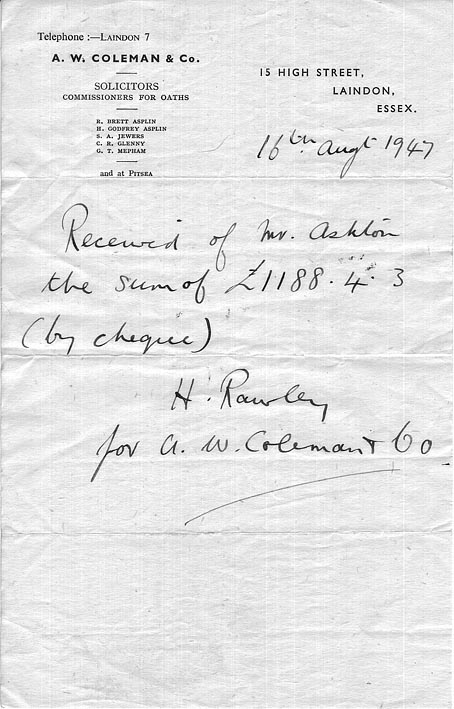 Telephone :—Laindon 7
A. W. COLEMAN & Co.
SOLICITORS
COMMISSIONERS FOR OATHS
R. BRETT ASPLIN
H. GODFREY ASPLIN
S. A. JEWERS
C. R. GLENNY
G. T. MEPHAM
and at Pitsea
15 HIGH STREET,
LAINDON,
ESSEX.
16th Augt 1947
Received of Mr. Ashton
the sum of £1188. 4. 3
(by cheque)
H. Rawley
for A. W. Coleman & Co.